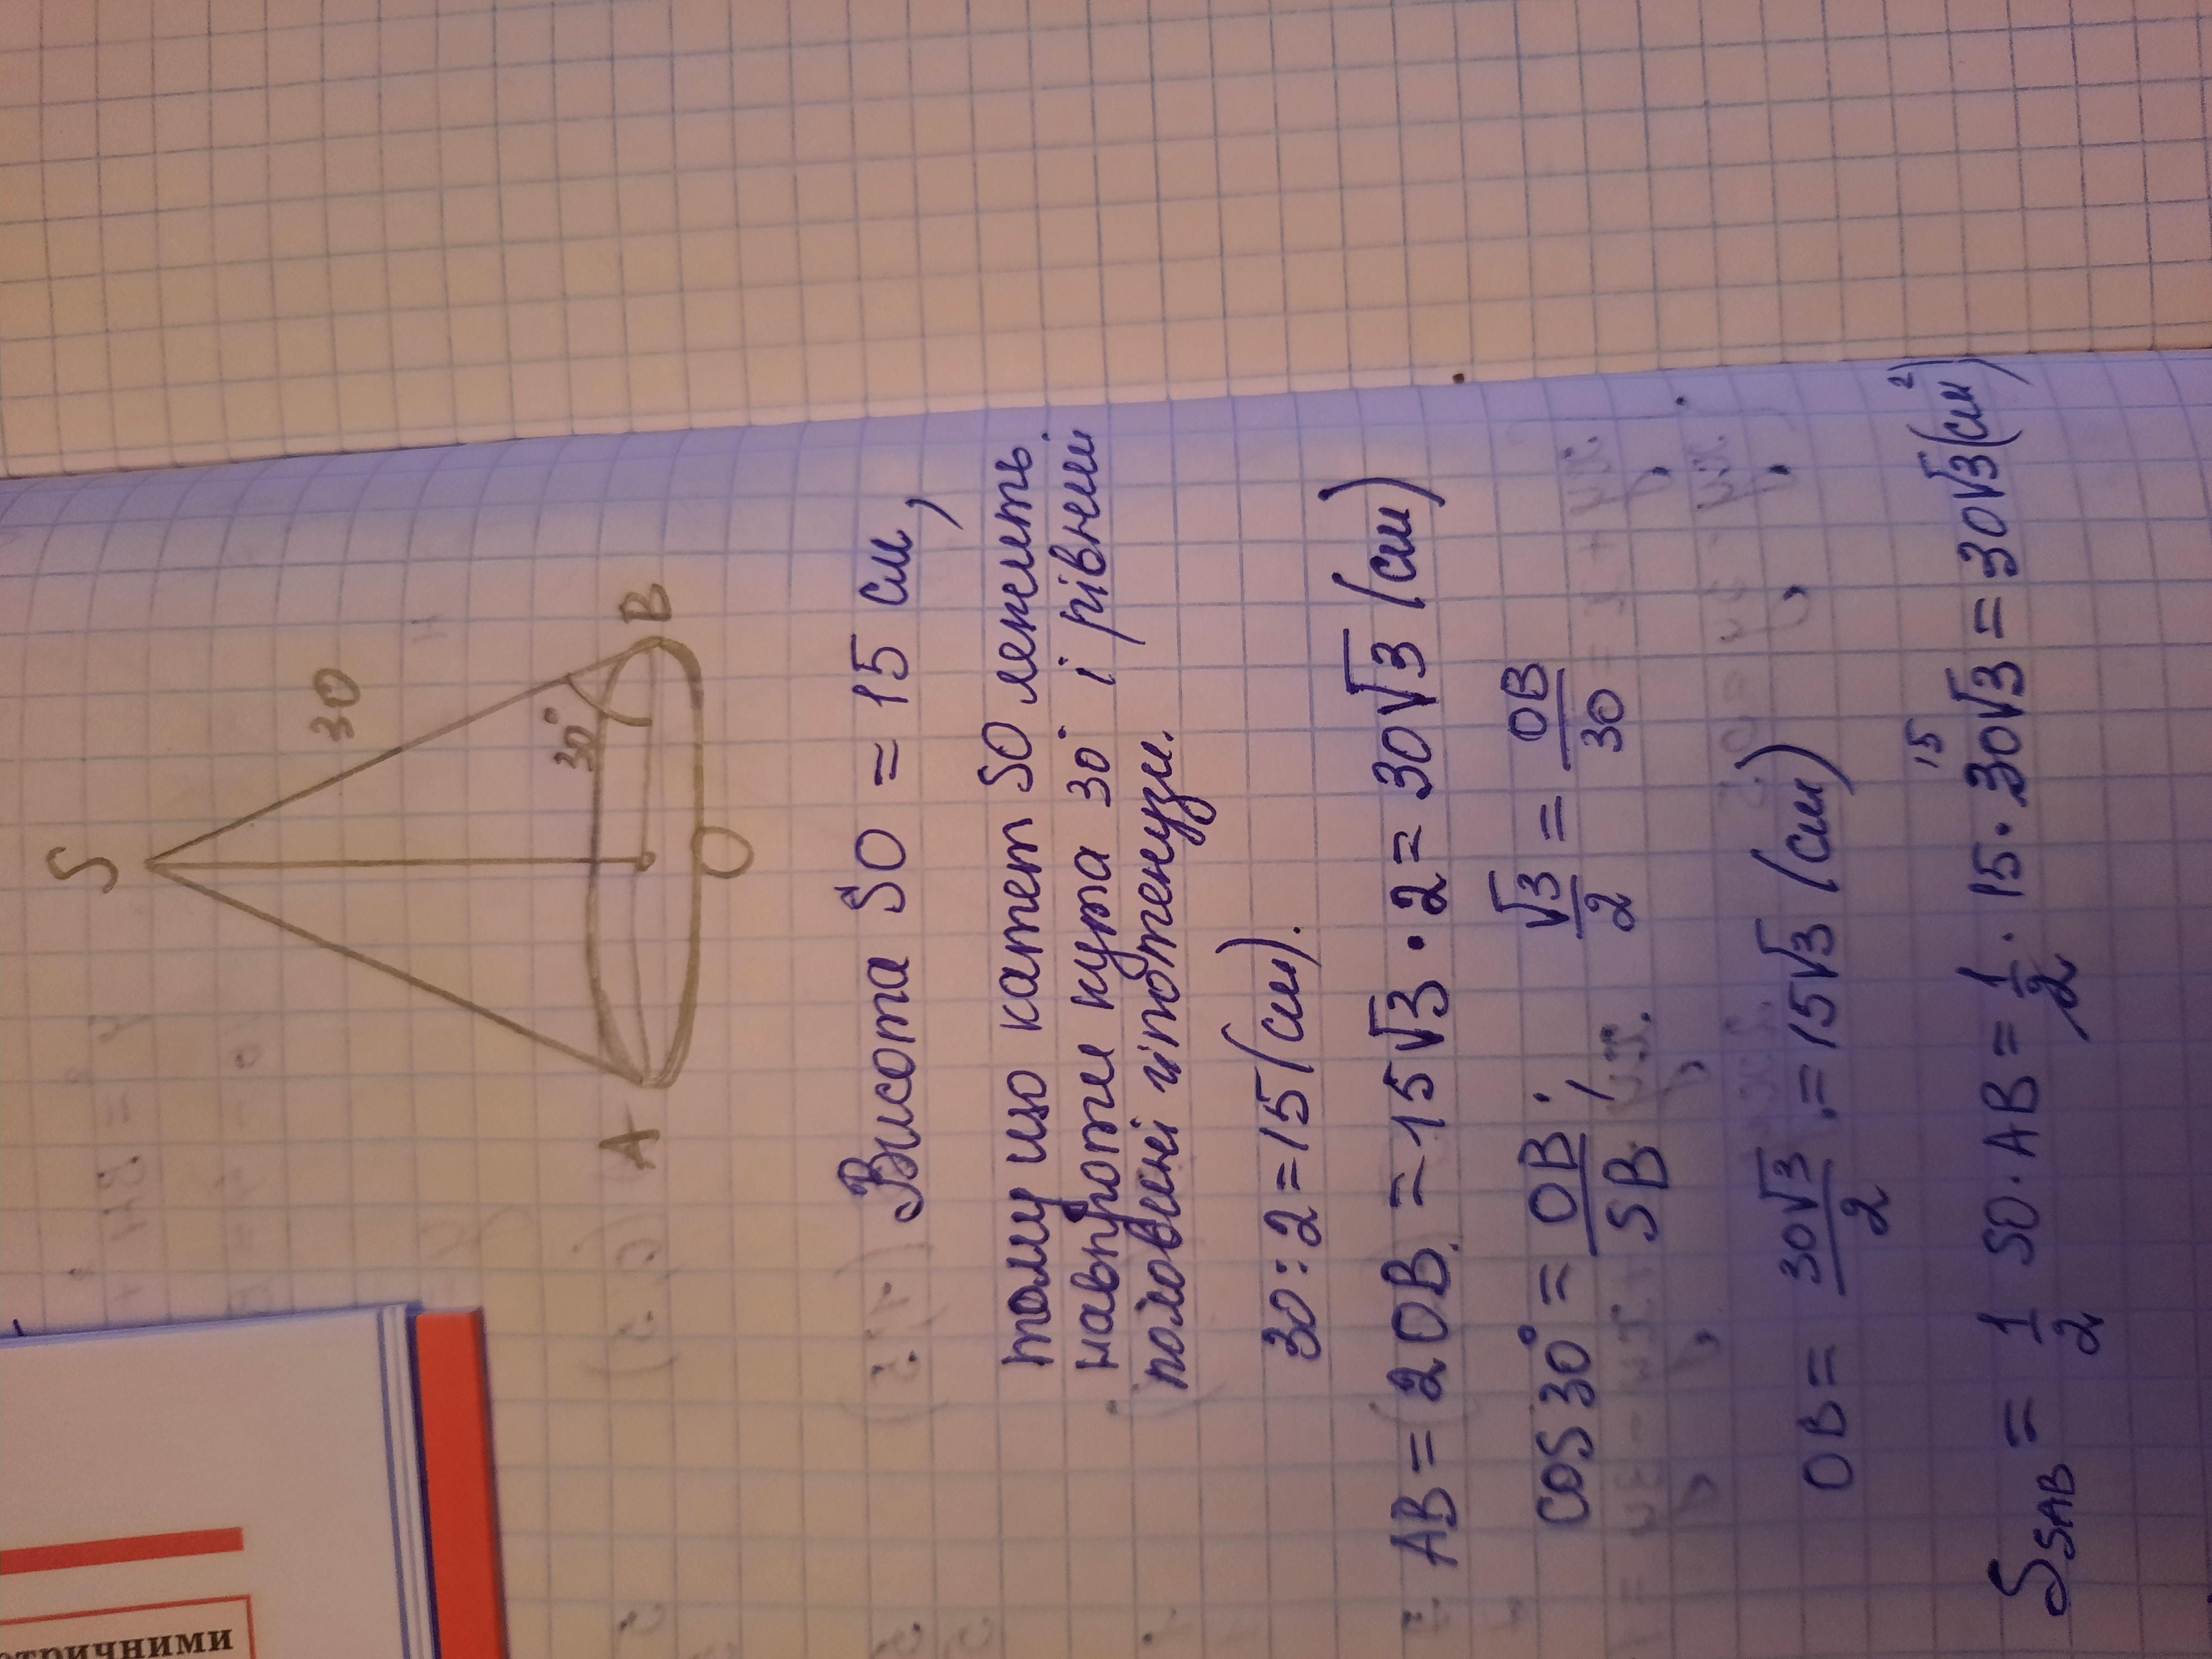 S
30
30°
A
B
O
Висота SO = 15 см,
тому що катет SO лежить
навпроти кута 30° і рівний
половині гіпотенузи.
30:2=15(см).
AB = 2OB = 15√3 · 2 = 30√3 (см)
cos 30° = OB/SB; √3/2 = OB/30
OB = 30√3/2 = 15√3 (см)
S SAB = 1/2 SO·AB = 1/2 · 15 · 30 15 √3 = 30√3 (см²)